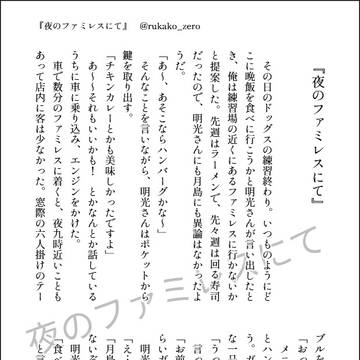 『夜のファミレスにて』　@rukako_zero
『夜のファミレスにて』
その日のドッグスの練習終わり。いつものようにど
こに晩飯を食べに行こうかと明光さんが言い出したと
き、俺は練習場の近くにあるファミレスに行かないか
と提案した。先週はラーメンで、先々週は回る寿司
だったので、明光さんにも月島にも異論はなかったよ
うだ。
「あ〜、あそこならハンバーグかな〜」
そんなことを言いながら、明光さんはポケットから
鍵を取り出す。
「チキンカレーとかも美味しかったですよ」
あ〜〜それもいいかも！　とかなんとか話している
うちに車に乗り込み、エンジンをかけた。
車で数分のファミレスに着くと、夜九時近いことも
あって店内に客は少なかった。窓際の六人掛けのテー
ブルを
「おつ
メニ
とハン
う。ガ
な一品
「うっ
らいガ
「お前
明光
「え…
「月島
ないぞ
明光
「食べ
夜のファミレスにて